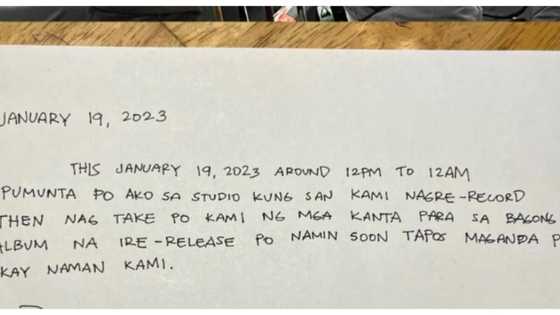 JANUARY 19, 2023
THIS JANUARY 19, 2023 AROUND 12PM TO 12AM
PUMUNTA PO AKO SA STUDIO KUNG SAN KAMI NAGRE-RECORD
THEN NAG TAKE PO KAMI NG MGA KANTA PARA SA BAGONG
ALBUM NA IRE-RELEASE PO NAMIN SOON TAPOS MAGANDA
KAY NAMAN KAMI.